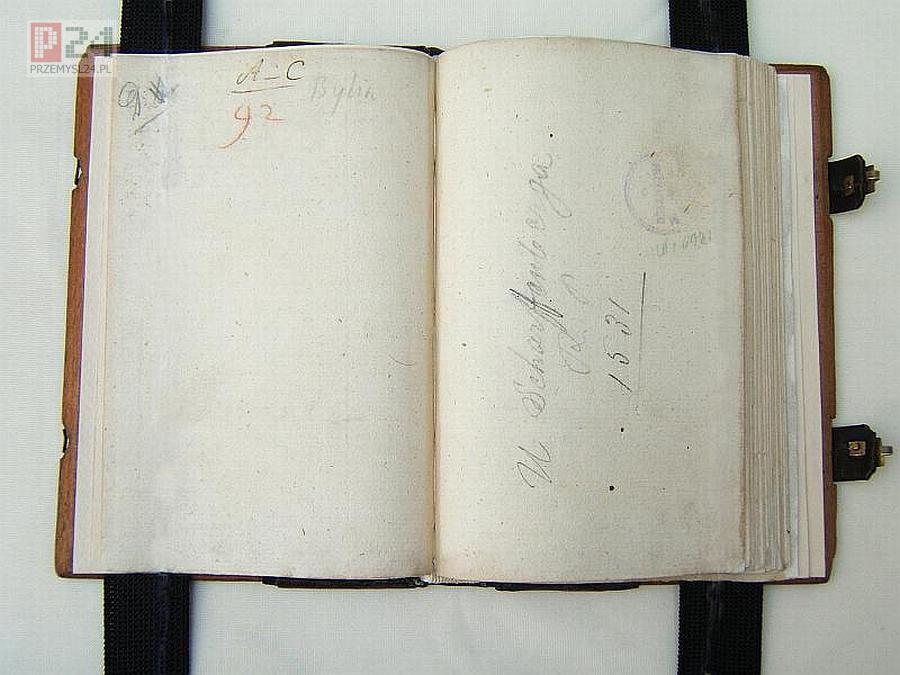 P24
PRZEMYSL24.PL
A-C
92
Bylin
U Scharffenberga
1531